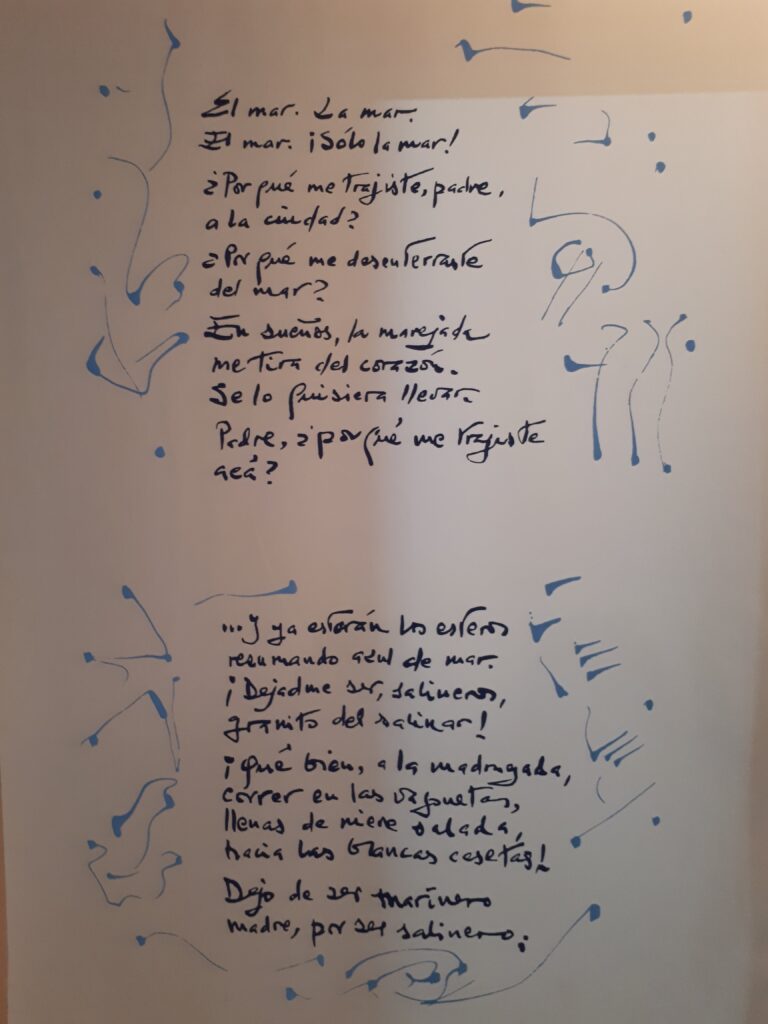 El mar. La mar.
El mar. ¡Sólo la mar!
¿Por qué me trajiste, padre,
a la ciudad?
¿Por qué me desenterraste
del mar?
En sueños, la marejada
me tira del corazón.
Se lo quisiera llevar.
Padre, ¿por qué me trajiste
acá?
...Y ya estarán los esteros
rezumando azul de mar.
¡Dejadme ser, salineros,
granito del salinar!
¡Qué bien, a la madrugada,
correr en las vagonetas,
llenas de nieve salada,
hacia las blancas casetas!
Dejo de ser marinero
madre, por ser salinero.